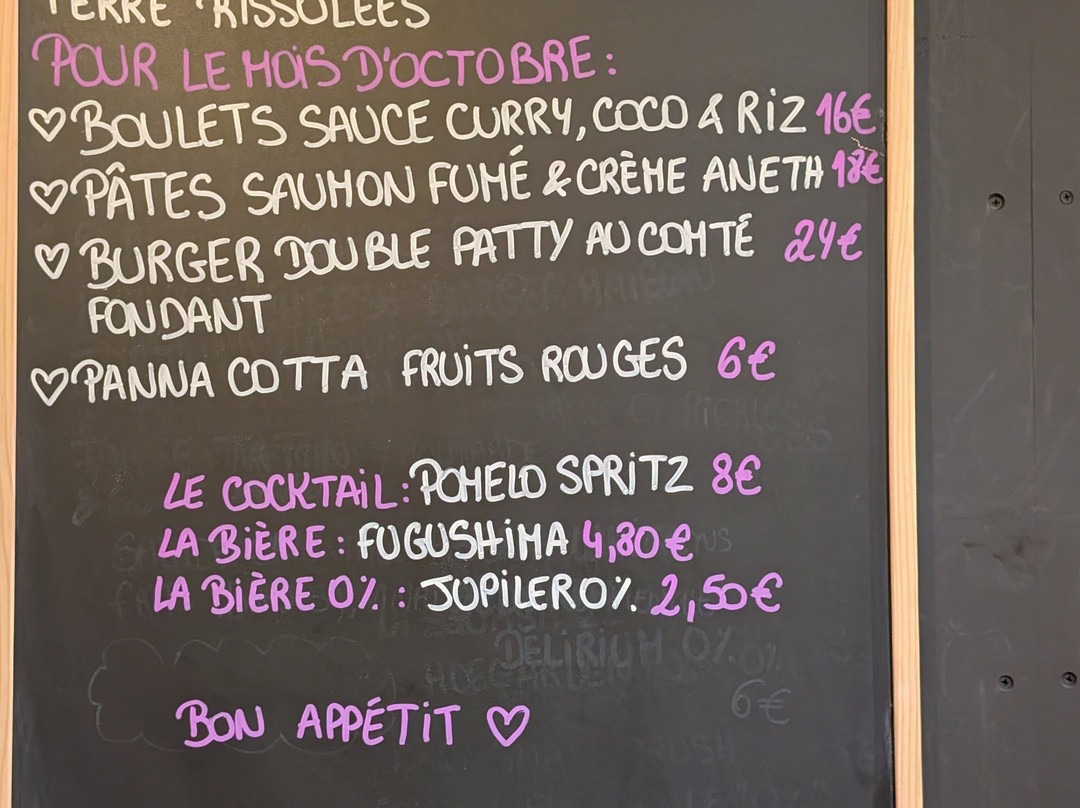 TERRE RISSOLÉES
POUR LE MOIS D'OCTOBRE :
♡ BOULETS SAUCE CURRY, COCO & RIZ 16€
♡ PÂTES SAUMON FUMÉ & CRÈME ANETH 18€
♡ BURGER DOUBLE PATTY AU COMTÉ 24€
FONDANT
♡ PANNA COTTA FRUITS ROUGES 6€
LE COCKTAIL : POMELO SPRITZ 8€
LA BIÈRE : FUGUSHIMA 4,80€
LA BIÈRE 0% : JUPILER 0% 2,50€
DELIRIUM 0%
HOEGARDEN 0%
6€
BON APPÉTIT ♡